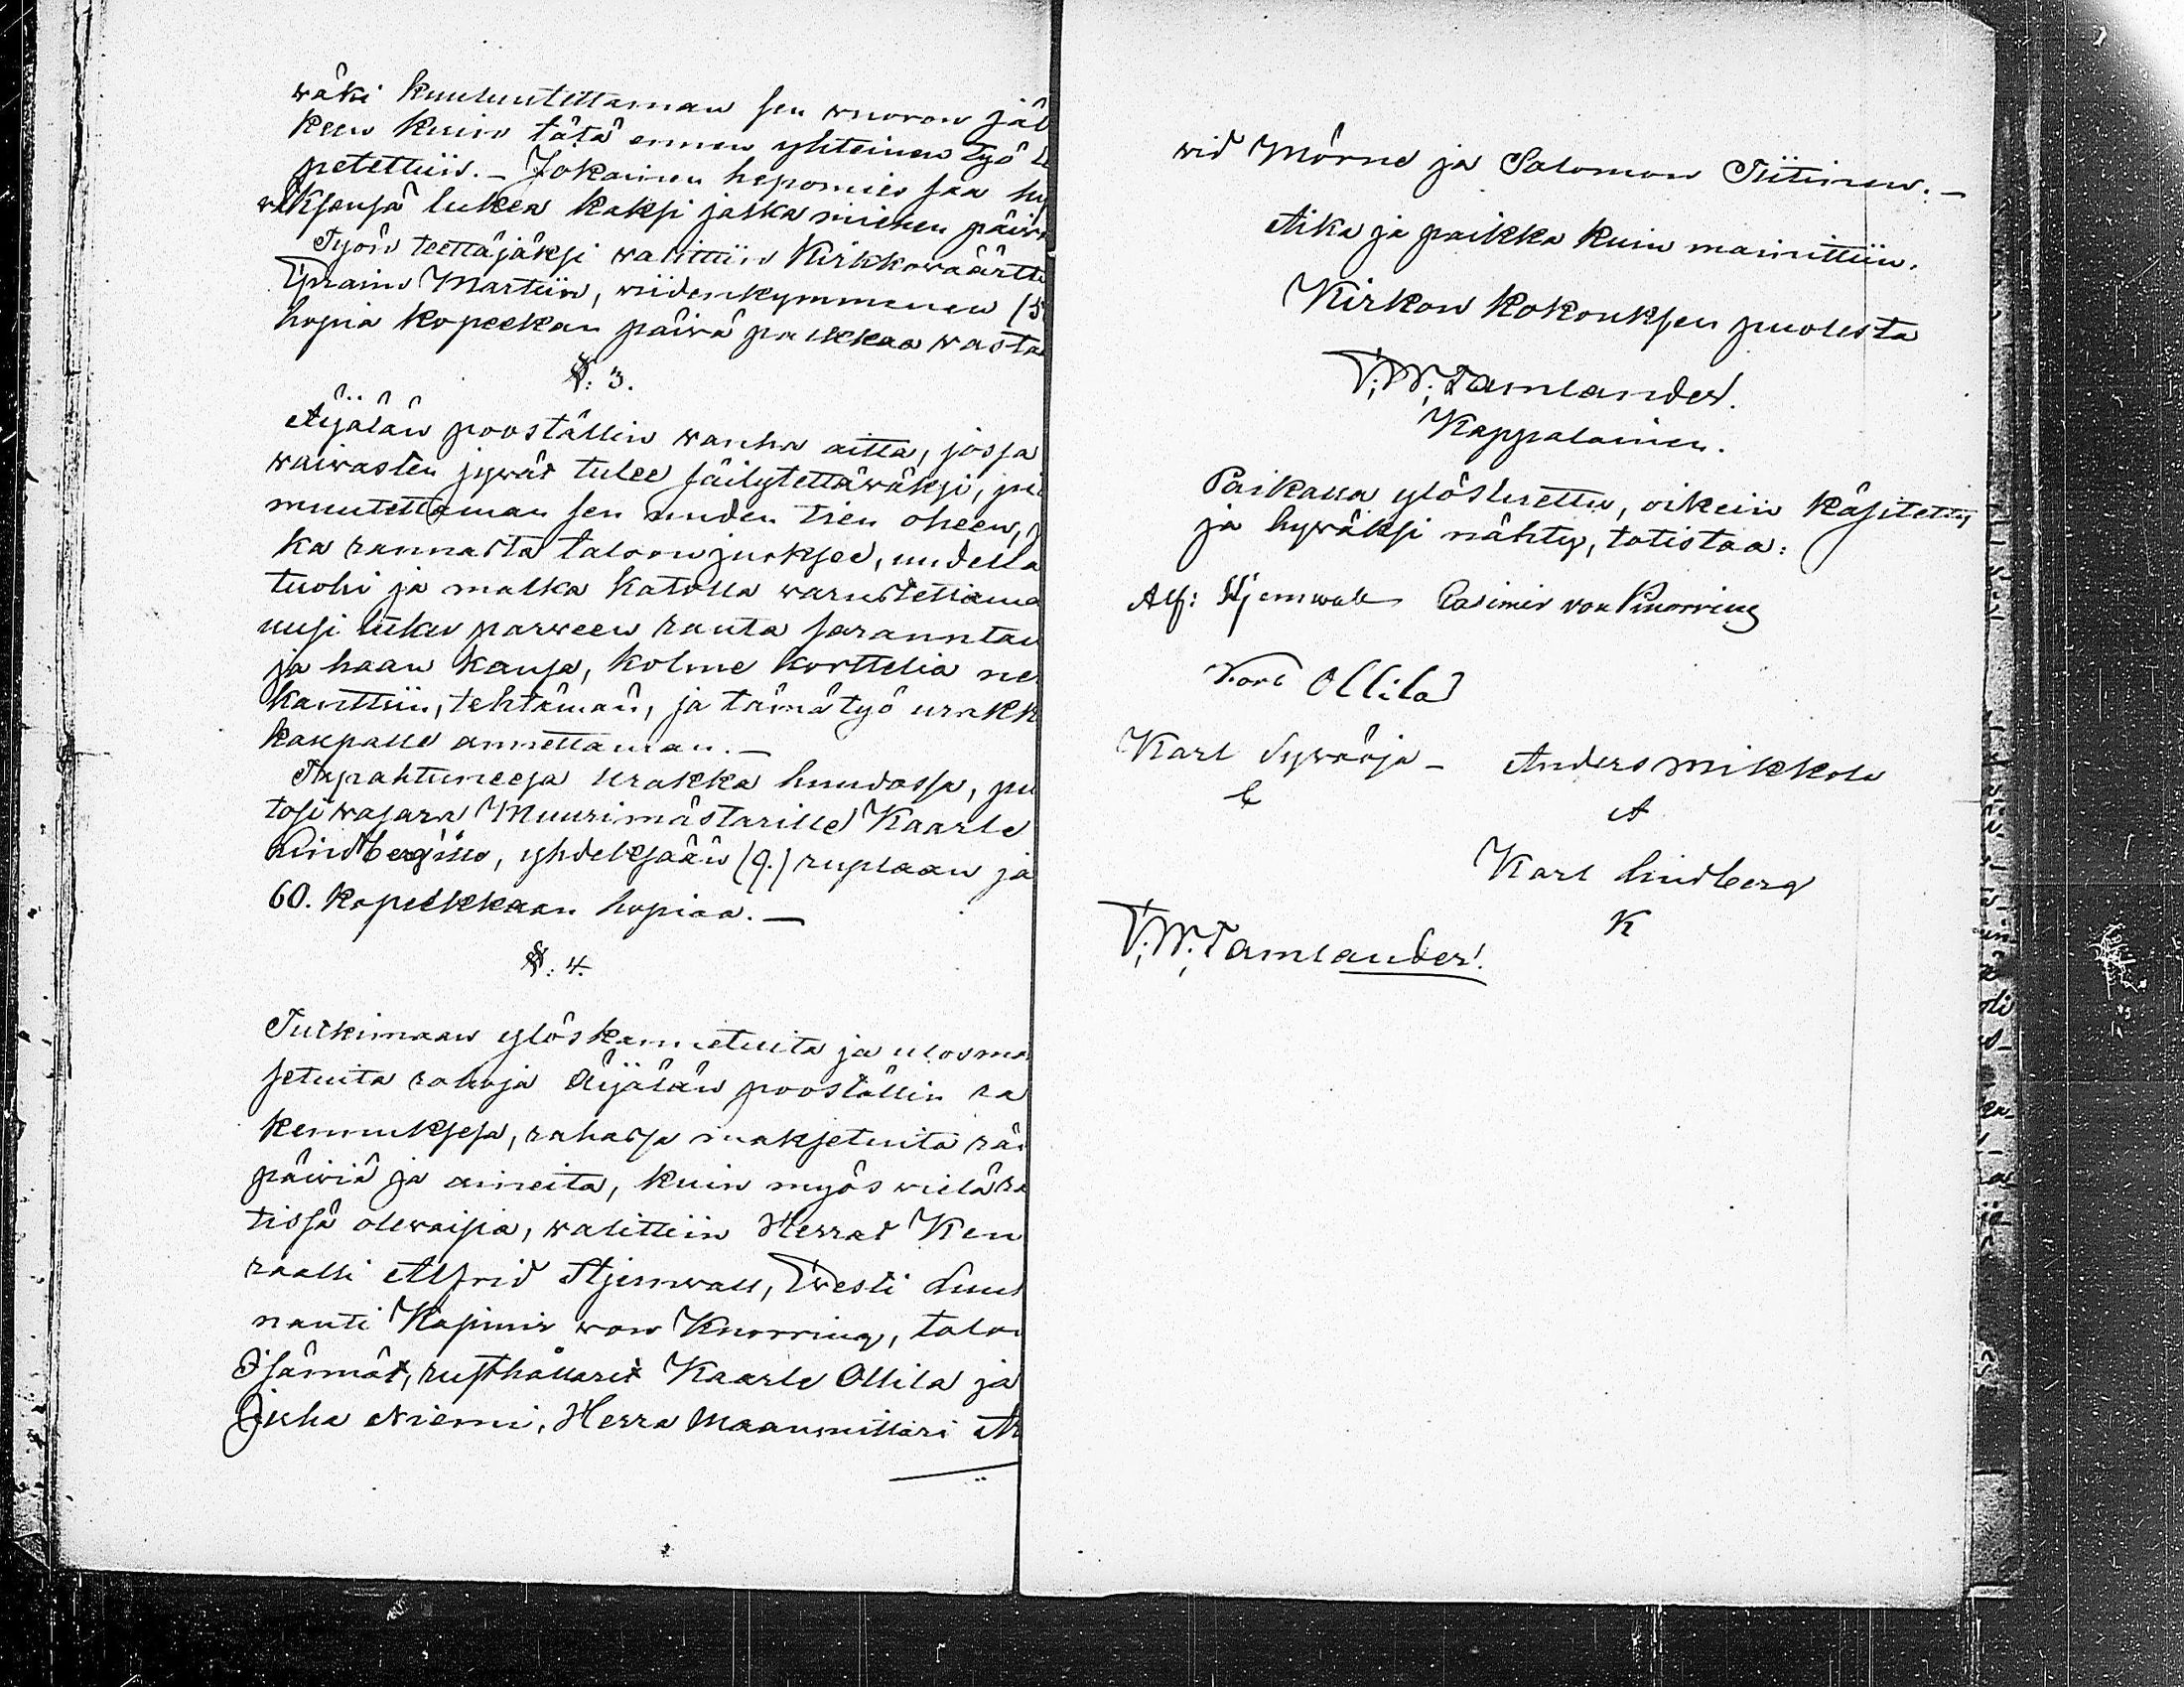 wäki kuuluutettaman sen wuoron jäl
keen kuin tätä ennen yhteinen työ
petettiin. - Jokainen hepomies saa hy
wäksensä lukea kaksi jalka miehen päiwä
Työn teettäjäksi walittiin Kirkkowäärtti
Efraim Martiin, wiidenkymmenen (5
hopia kopeekan päiwä palkkaa wasta
§: 3.
Äijälän pooställin wanha aitta, jossa
waiwasten jywät tulee säilytettäwäksi, pi
muutettaman sen uuden tien oheen,
ka rannasta taloon juoksee, uudella
tuohi ja malka katolla warustettama
uusi lukko parween rauta saranntan
ja haan kansa, kolme korttelia ne
kanttiin, tehtämän, ja tämä työ urakk
kaupalle annettaman. -
Tapahtuneesa urakka huudossa, pu
tosi wasara Muurimästarille Kaarle
Lindbergille, yhdeksään (9.) ruplaan ja
60. kopeekkaan hopiaa. -
§: 4.
Tutkimaan ylöskannetuita ja ulosma
setuita rahoja Äijälän pooställin ra
kennuksesa, rahassa maksetuita
päiwiä ja aineita, kuin myös wielä
tissä olewaisia, walittiin Herrat Ken
raalli Alfrid Stjernwall, Ewesti Luut
nanti Kasimir won Knorring, talon
Isännät, rusthållarit Kaarle Ollila ja
Juha Niemi, Herra Maanmittari Ar
wid Mörne ja Salomon Tiitinen. -
Aika ja paikka kuin mainittiin.
Kirkon kokouksen puolesta
F; W; Tamlander.
Kappalainen.
Paikalla ylösluettu, oikein käsitetty
ja hywäksi nähty, totistaa:
Alf: Stjernwall Casimir von Knorring
Karl Ollila
Karl Sywäoja - Anders Mikkola
A
Karl Lindberg
K
F; W; Tamlander.